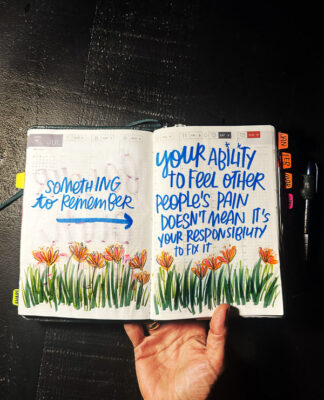 SOMETHING
to REMEMBER
your ABILITY
TO FEEL OTHER
PEOPLE'S PAIN
DOESN'T MEAN IT'S
YOUR RESPONSIBILITY
TO FIX IT